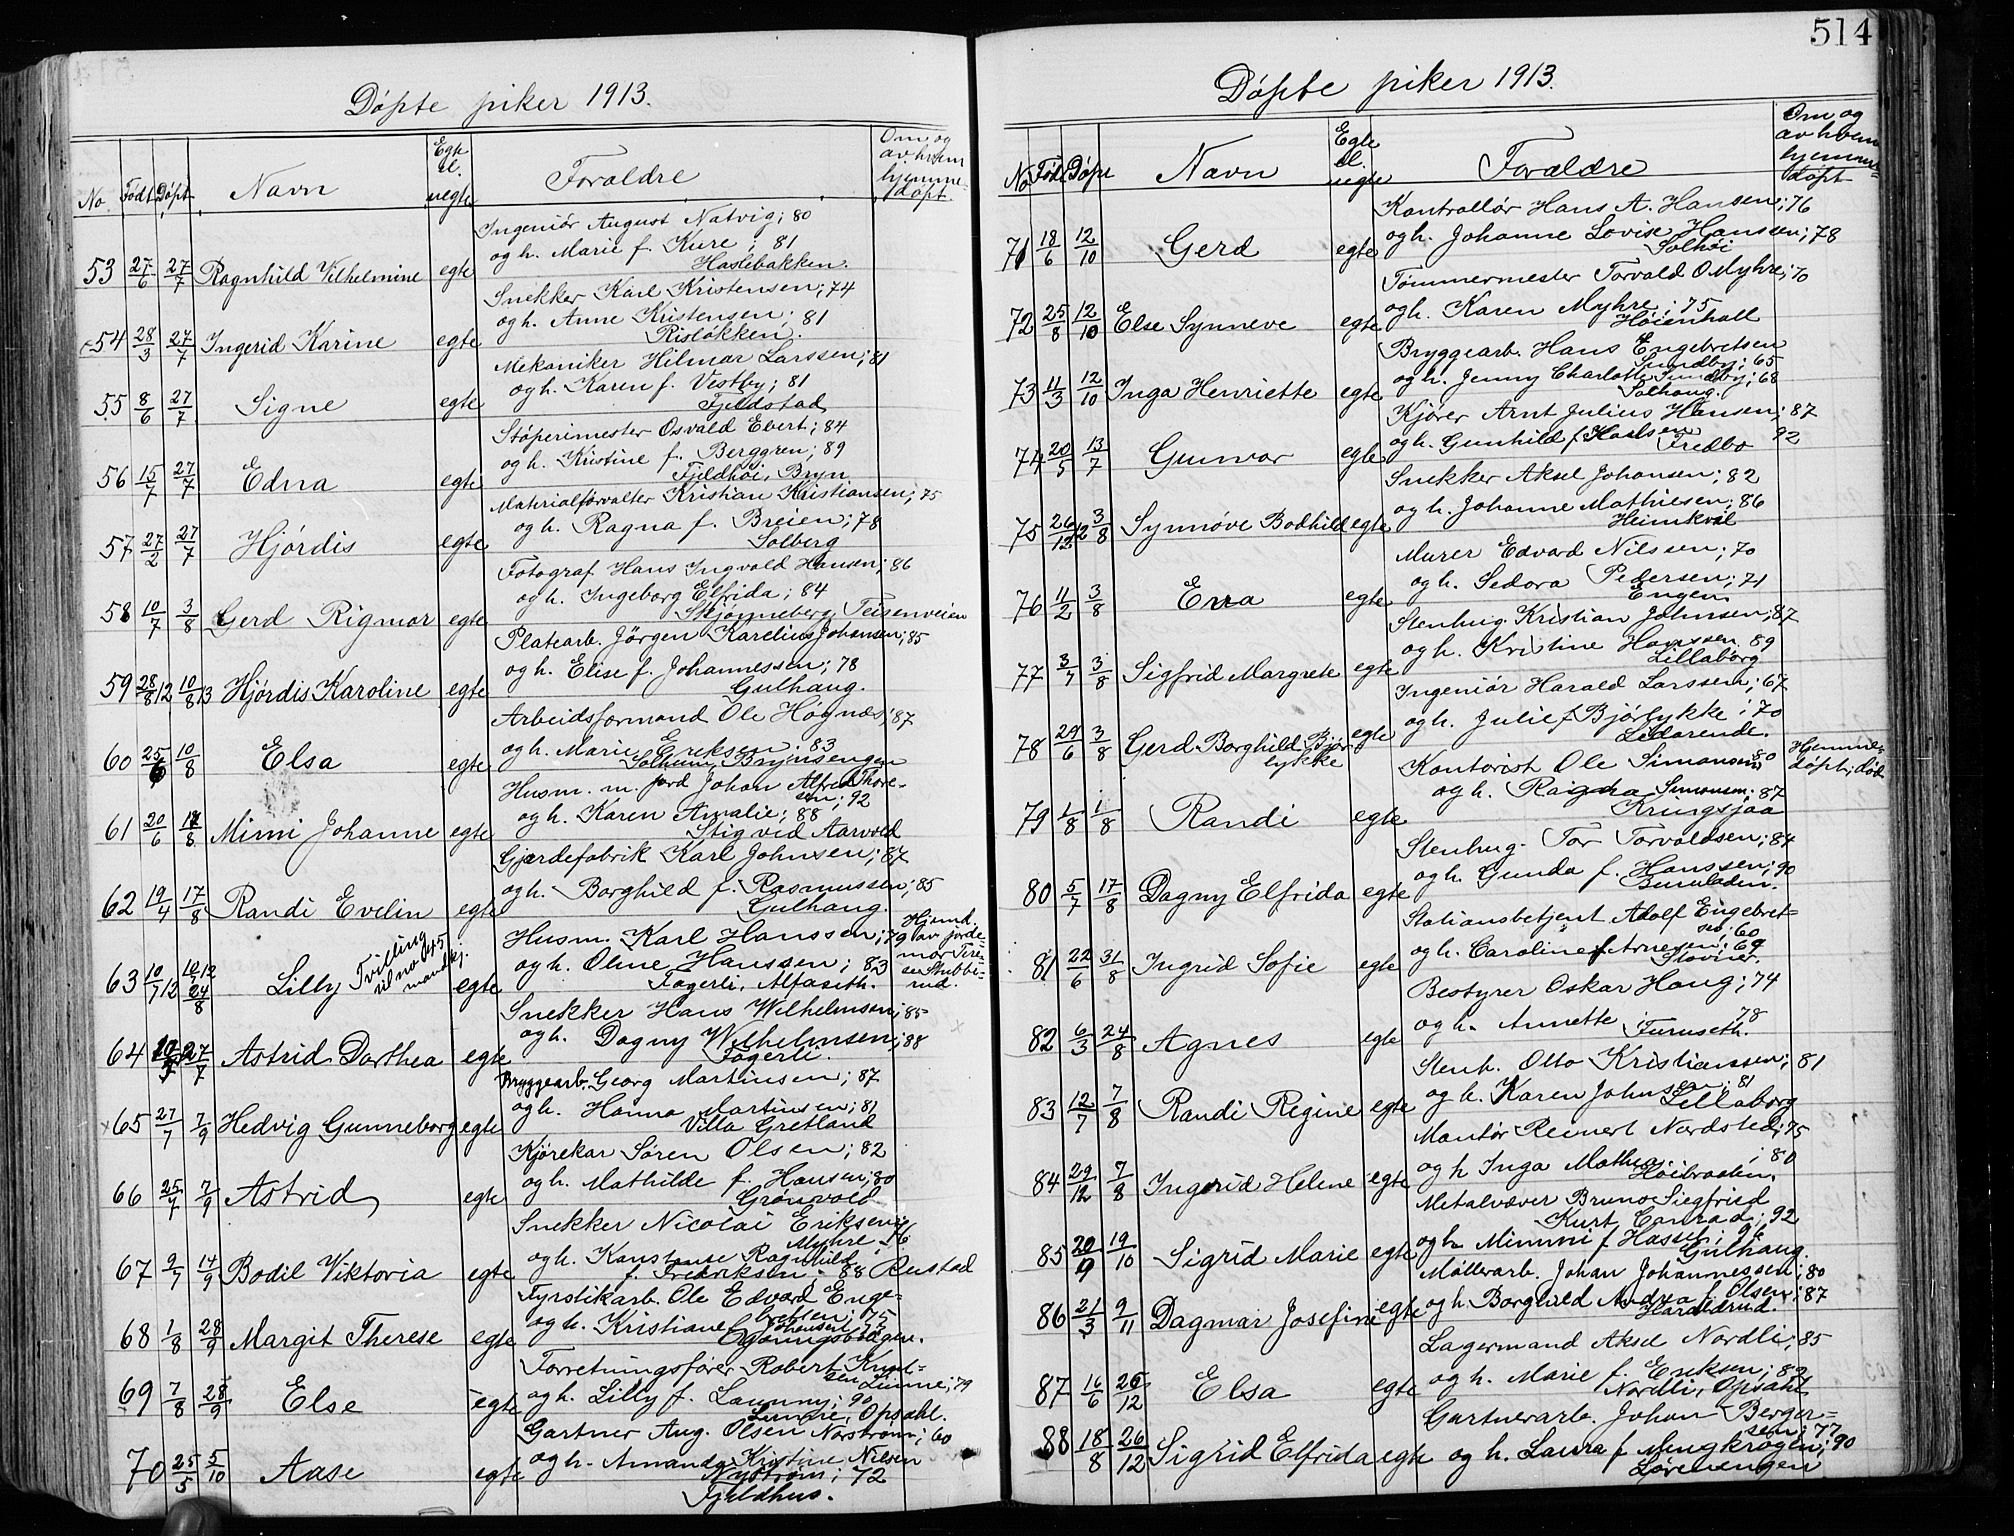 514
Døpte piker 1913.
No. Født Døpt Navn Egte el. uegte Forældre Om og av hvem hjemme-døpt.
Ingeniør August Natvig; 80
53 27/6 27/7 Ragnhild Vilhelmine egte og h. Marie f. Kure; 81
Haslebakken.
Snekker Karl Kristensen; 74
54 28/3 27/7 Ingerid Karine egte og h. Anne Kristensen; 81
Risløkken.
Mekaniker Hilmar Larssen; 81
55 8/6 27/7 Signe egte og h. Karen f. Vestby; 81
Fjeldstad
Støperimester Osvald Ebert; 84
56 15/7 27/7 Edna egte og h. Kristine f. Berggren; 89
Fjeldhøi, Bryn
Materialforvalter Kristian Kristiansen; 75
57 27/2 27/7 Hjørdis egte og h. Ragna f. Breien; 78
Solberg
Fotograf Hans Ingvald Hansen; 86
58 10/7 3/8 Gerd Rigmor egte og h. Ingeborg Elfrida; 84
Skjønneberg, Teisenveien
Platearb. Jörgen Karelius Johansen; 85
59 28/8 12 10/8 13 Hjørdis Karoline egte og h. Elise f. Johannessen; 78
Gulhaug.
Arbeidsformand Ole Høgnæs; 87
60 25/6 10/8 Elsa egte og h. Marie Eriksen; 83
Solheim, Brynsengen
Husm. m. jord Johan Alfred Thore-
sen; 92
61 20/6 /8 Mimi Johanne egte og h. Karen Amalie; 88
Stig ved Aarvold
Gjærdefabrik Karl Johnsen; 87
62 19/4 17/8 Randi Evelin egte og h. Borghild f. Rasmussen; 85
Gulhaug.
Husm. Karl Hanssen; 79 Hjemd. av jorde-
63 10/7 12 24/8 Lilly Tvilling til no 45 mandkj. egte og h. Oline Hanssen; 83 mor
Fagerli, Alfaseth.
Snekker Hans Wilhelmsen; 85
64 27/7 Astrid Dorthea egte og h. Dagny Wilhelmsen; 88
Fagerli.
Bryggearb. Georg Martinsen; 87
65 27/7 7/9 Hedvig Gunneborg egte og h. Hanna Martinsen; 81
Villa Gretland
Kjørekar Søren Olsen; 82
66 25/7 7/9 Astrid egte og h. Mathilde f. Hansen; 80
Grønvold
Snekker Nicolai Eriksen
Myhre; 76
67 9/7 14/9 Bodil Viktoria egte og h. Konstanse Ragnhild
f. Fredriksen; 88 Rustad
Fyrstikarb. Ole Edvard Enge-
bretsen; 75
68 1/8 28/9 Margit Therese egte og h. Kristiane Johansen; 75
Forretningsfører Robert Knud-
sen Linne; 79
69 7/8 28/9 Else egte og h. Lilly f. Launny; 90
Linne, Opsahl.
Gartner Aug. Olsen Norstrøm; 60
70 25/5 5/10 Aase egte og h. Amanda Kristine Nilsen
Nystrøm; 72
Fjeldhus.
Døpte piker 1913.
No Født Døpt Navn Egte el. uegte Forældre Om og av hvem hjemme-døpt
Kontrollør Hans A. Hansen; 76
71 18/6 12/10 Gerd egte og h. Johanne Lovise Hanssen; 78
Solhøi
Tømmermester Torvald O Myhre; 70
72 25/8 12/10 Else Synneve egte og h. Karen Myhre; 75
Høienhall
Bryggearb. Hans Engebretsen
Sundby; 65
73 11/3 12/10 Inga Henriette egte og h. Jenny Charlotte Sundby; 68
Solhaug.
Kjører Arnt Julius Hansen; 87
74 20/5 13/7 Gunvor egte og h. Gunhild f. Karlsen 92
Fredbo
Snekker Aksel Johansen; 82
75 26/12 12 3/8 Synnøve Bodhild egte og h. Johanne Mathiesen; 86
Heimkvil
Murer Edvard Nilssen; 70
76 11/2 3/8 Erna egte og h. Sedora Pedersen; 71
Engen.
Stenhug. Kristian Johnsen; 87
77 3/7 3/8 Sigfrid Margrete egte og h. Kristine Hanssen. 89
Lillaborg
Ingeniør Harald Larssen; 67
78 29/6 3/8 Gerd Borghild Bjør-
lykke egte og h. Julie f Bjørlykke; 70
Lidarende.
Kontorist Ole Simonsen; 80 Hjemme-
døpt, død
79 1/8 1/8 Randi egte og h. Ragna Simonsen. 87
Kringsjaa
Stenhug. Tor Torvaldsen; 84
80 5/7 17/8 Dagny Elfrida egte og h. Gunda f. Hanssen; 90
Stationsbetjent Adolf Engebret-
sen; 60
81 22/6 31/8 Ingrid Sofie egte og h. Caroline f Arnesen; 69
Stovner.
Bestyrer Oskar Haug; 74
82 6/3 24/8 Agnes egte og h. Annette 78
Furuseth.
Stenh. Otto Kristianssen; 81
83 12/7 7/8 Randi Regine egte og h. Karen Johnsen; 81
Lillaborg
Montør Reinert Nordsted; 75
84 29/12 7/8 Ingerid Helene egte og h Inga Mathea; 80
Høibraaten.
Metalvæver Bruno Siegfried
Kurt Conrad; 92
85 20/9 19/10 Sigrid Marie egte og h Mimmi f Hassel; 92
Gulhaug.
Møllerarb. Johan Johannessen; 80
86 21/3 9/11 Dagmar Josefine egte og h. Borghild Andrea f. Olsen; 87
Haraldrud.
Lagermand Aksel Nordli; 85
87 16/6 26/12 Elsa egte og h. Marie f. Eriksen; 82
Nordli, Opsahl
Gartnerarb. Johan Berger-
sen; 77
88 18/8 26/12 Sigrid Elfrida egte og h. Laura f Mengkrogen; 90
Lørenengen